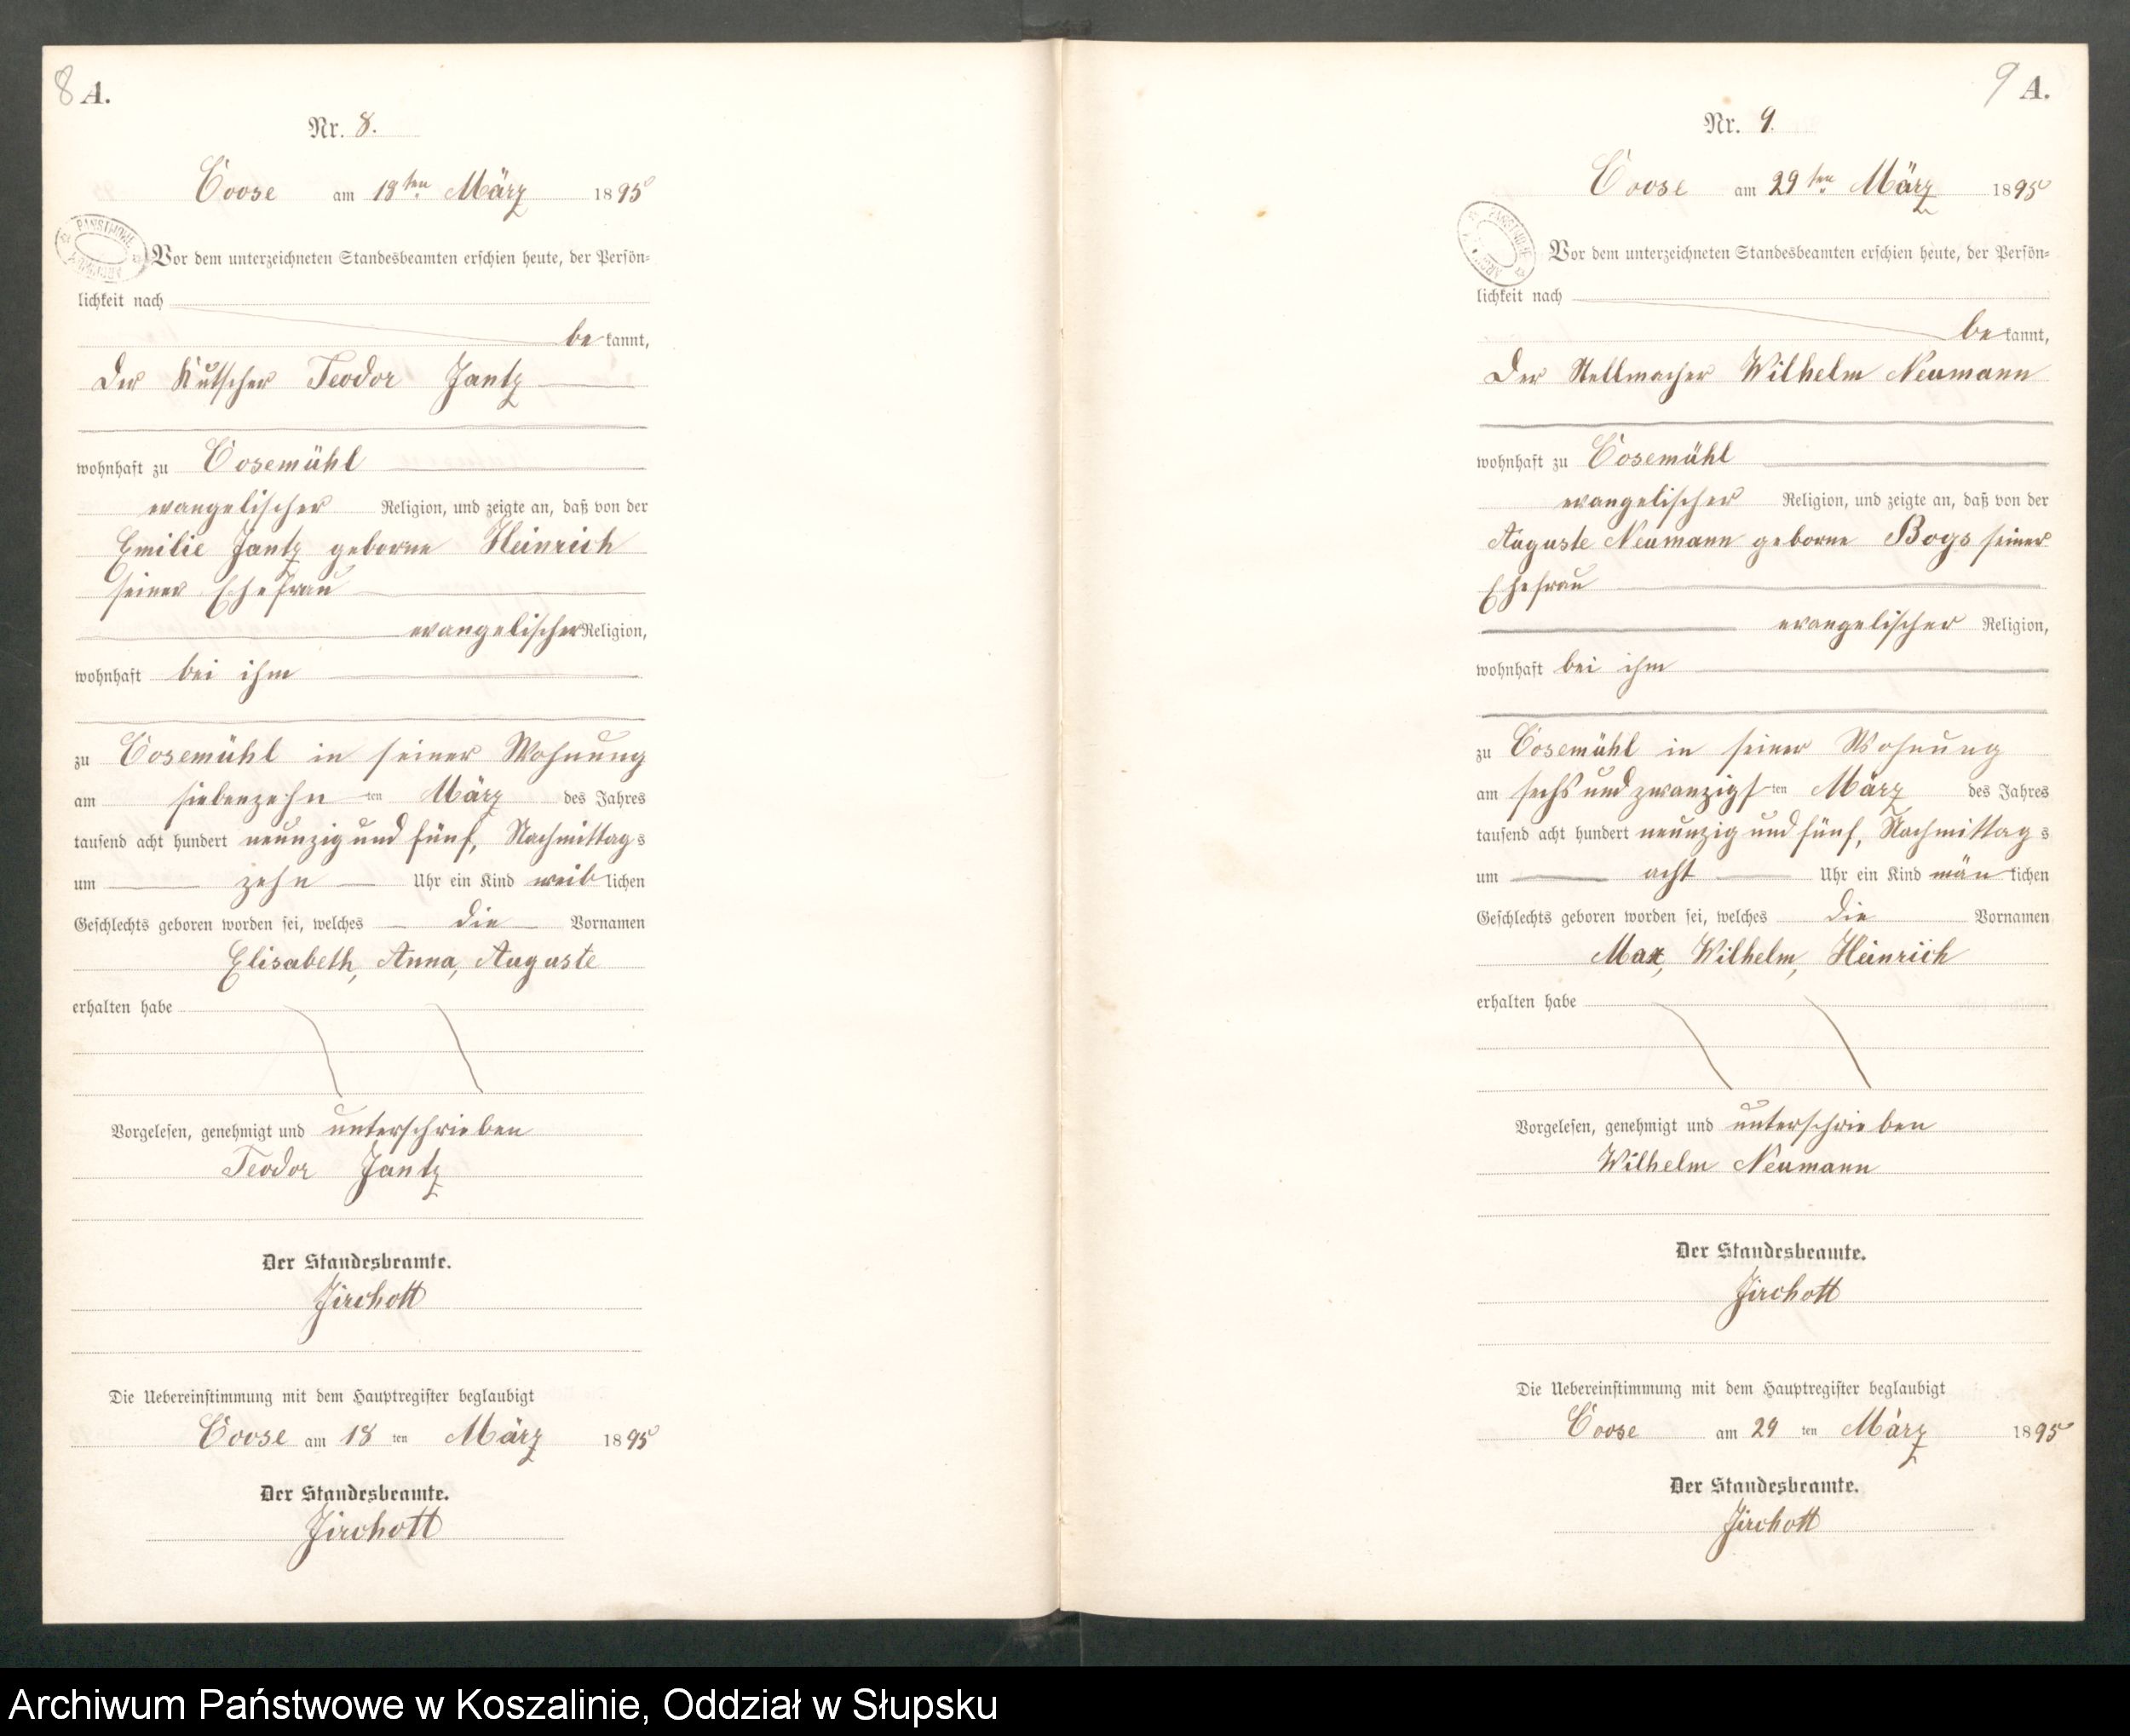 8 A.
Nr. 8.
Coose am 18ten März 1895
Vor dem unterzeichneten Standesbeamten erschien heute, der Persön-
lichkeit nach
be kannt,
der Kutscher Teodor Jantz
wohnhaft zu Cosemühl
evangelischer Religion, und zeigte an, daß von der
Emilie Jantz geborne Heinrich
seiner Ehefrau
evangelischer Religion,
wohnhaft bei ihm
zu Cosemühl in seiner Wohnung
am siebenzehn ten März des Jahres
tausend acht hundert neunzig und fünf, Nachmittag s
um zehn Uhr ein Kind weib lichen
Geschlechts geboren worden sei, welches die Vornamen
Elisabeth, Anna, Auguste
erhalten habe
Vorgelesen, genehmigt und unterschrieben
Teodor Jantz
Der Standesbeamte.
Jirchott
Die Uebereinstimmung mit dem Hauptregister beglaubigt
Coose am 18 ten März 1895
Der Standesbeamte.
Jirchott
9 A.
Nr. 9.
Coose am 29ten März 1895
Vor dem unterzeichneten Standesbeamten erschien heute, der Persön-
lichkeit nach
be kannt,
Der Stellmacher Wilhelm Neumann
wohnhaft zu Cosemühl
evangelischer Religion, und zeigte an, daß von der
Auguste Neumann geborne Bogs seiner
Ehefrau
evangelischer Religion,
wohnhaft bei ihm
zu Cosemühl in seiner Wohnung
am sechs und zwanzigs ten März des Jahres
tausend acht hundert neunzig und fünf, Nachmittag s
um acht Uhr ein Kind män lichen
Geschlechts geboren worden sei, welches die Vornamen
Max, Wilhelm, Heinrich
erhalten habe
Vorgelesen, genehmigt und unterschrieben
Wilhelm Neumann
Der Standesbeamte.
Jirchott
Die Uebereinstimmung mit dem Hauptregister beglaubigt
Coose am 29 ten März 1895
Der Standesbeamte.
Jirchott
Archiwum Państwowe w Koszalinie, Oddział w Słupsku